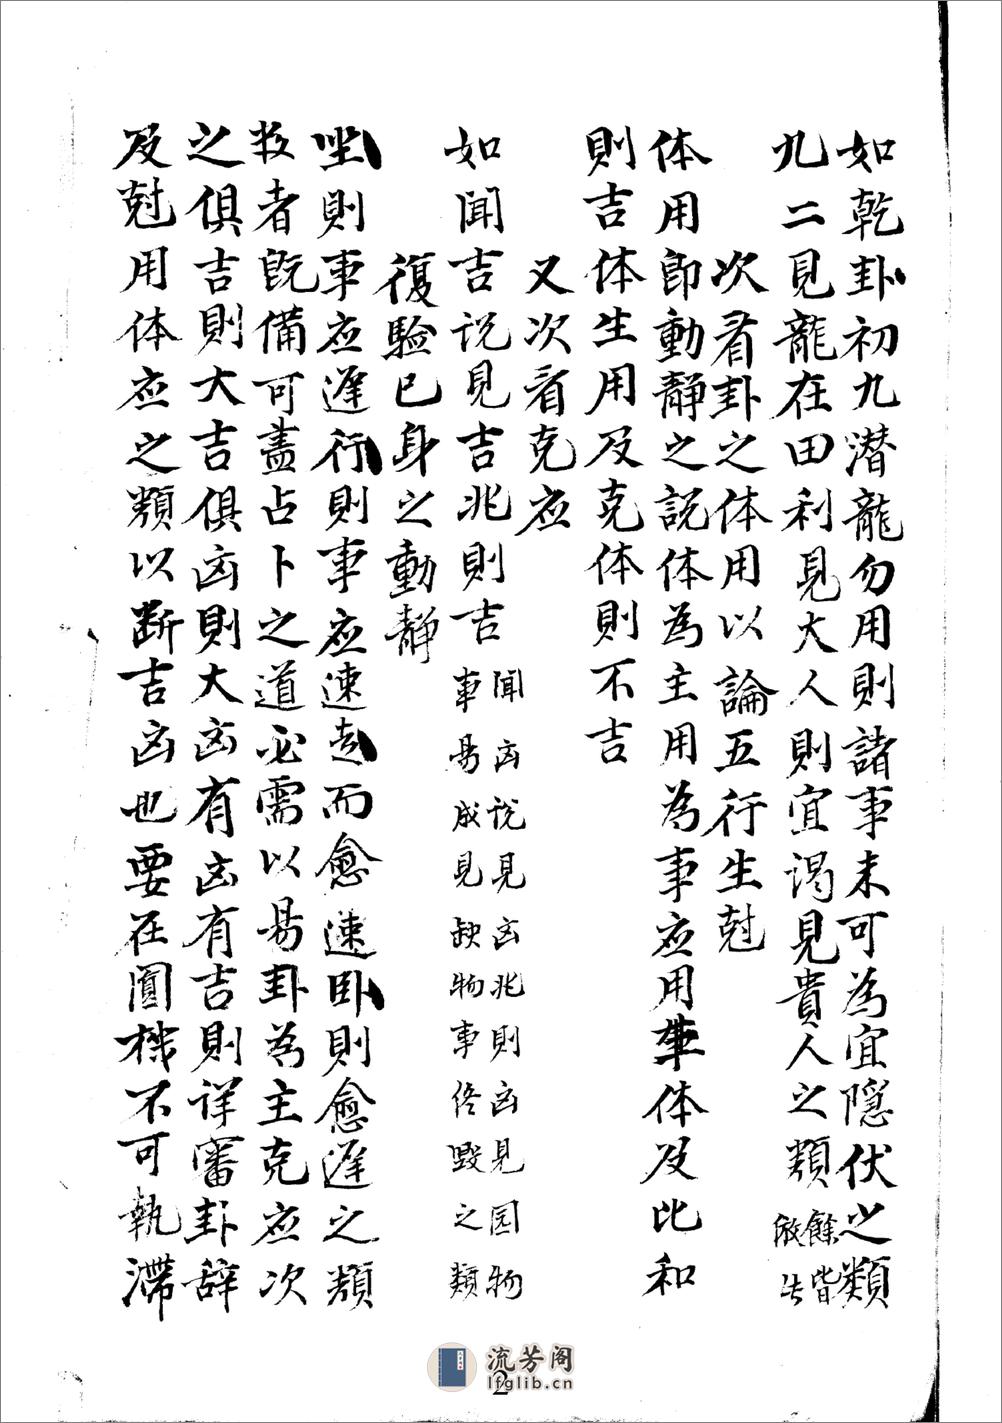 如乾卦初九潛龍勿用則諸事未可為宜隱伏之類
九二見龍在田利見大人則宜謁見貴人之類餘皆倣此
次看卦之体用以論五行生尅
体用即動靜之説体為主用為事应用生体及比和
則吉体生用及克体則不吉
又次看克应
如聞吉说見吉兆則吉聞凶说見凶兆則凶見圆物
事易成見缺物事終毀之類
復驗已身之動静
坐則事应遲行則事应速走而愈速卧則愈遲之類
数者既備可盡占卜之道必需以易卦為主克应次
之俱吉則大吉俱凶則大凶有凶有吉則详審卦辞
及尅用体应之類以断吉凶也要在圓機不可執滯
流芳阁
lfglib.cn
2